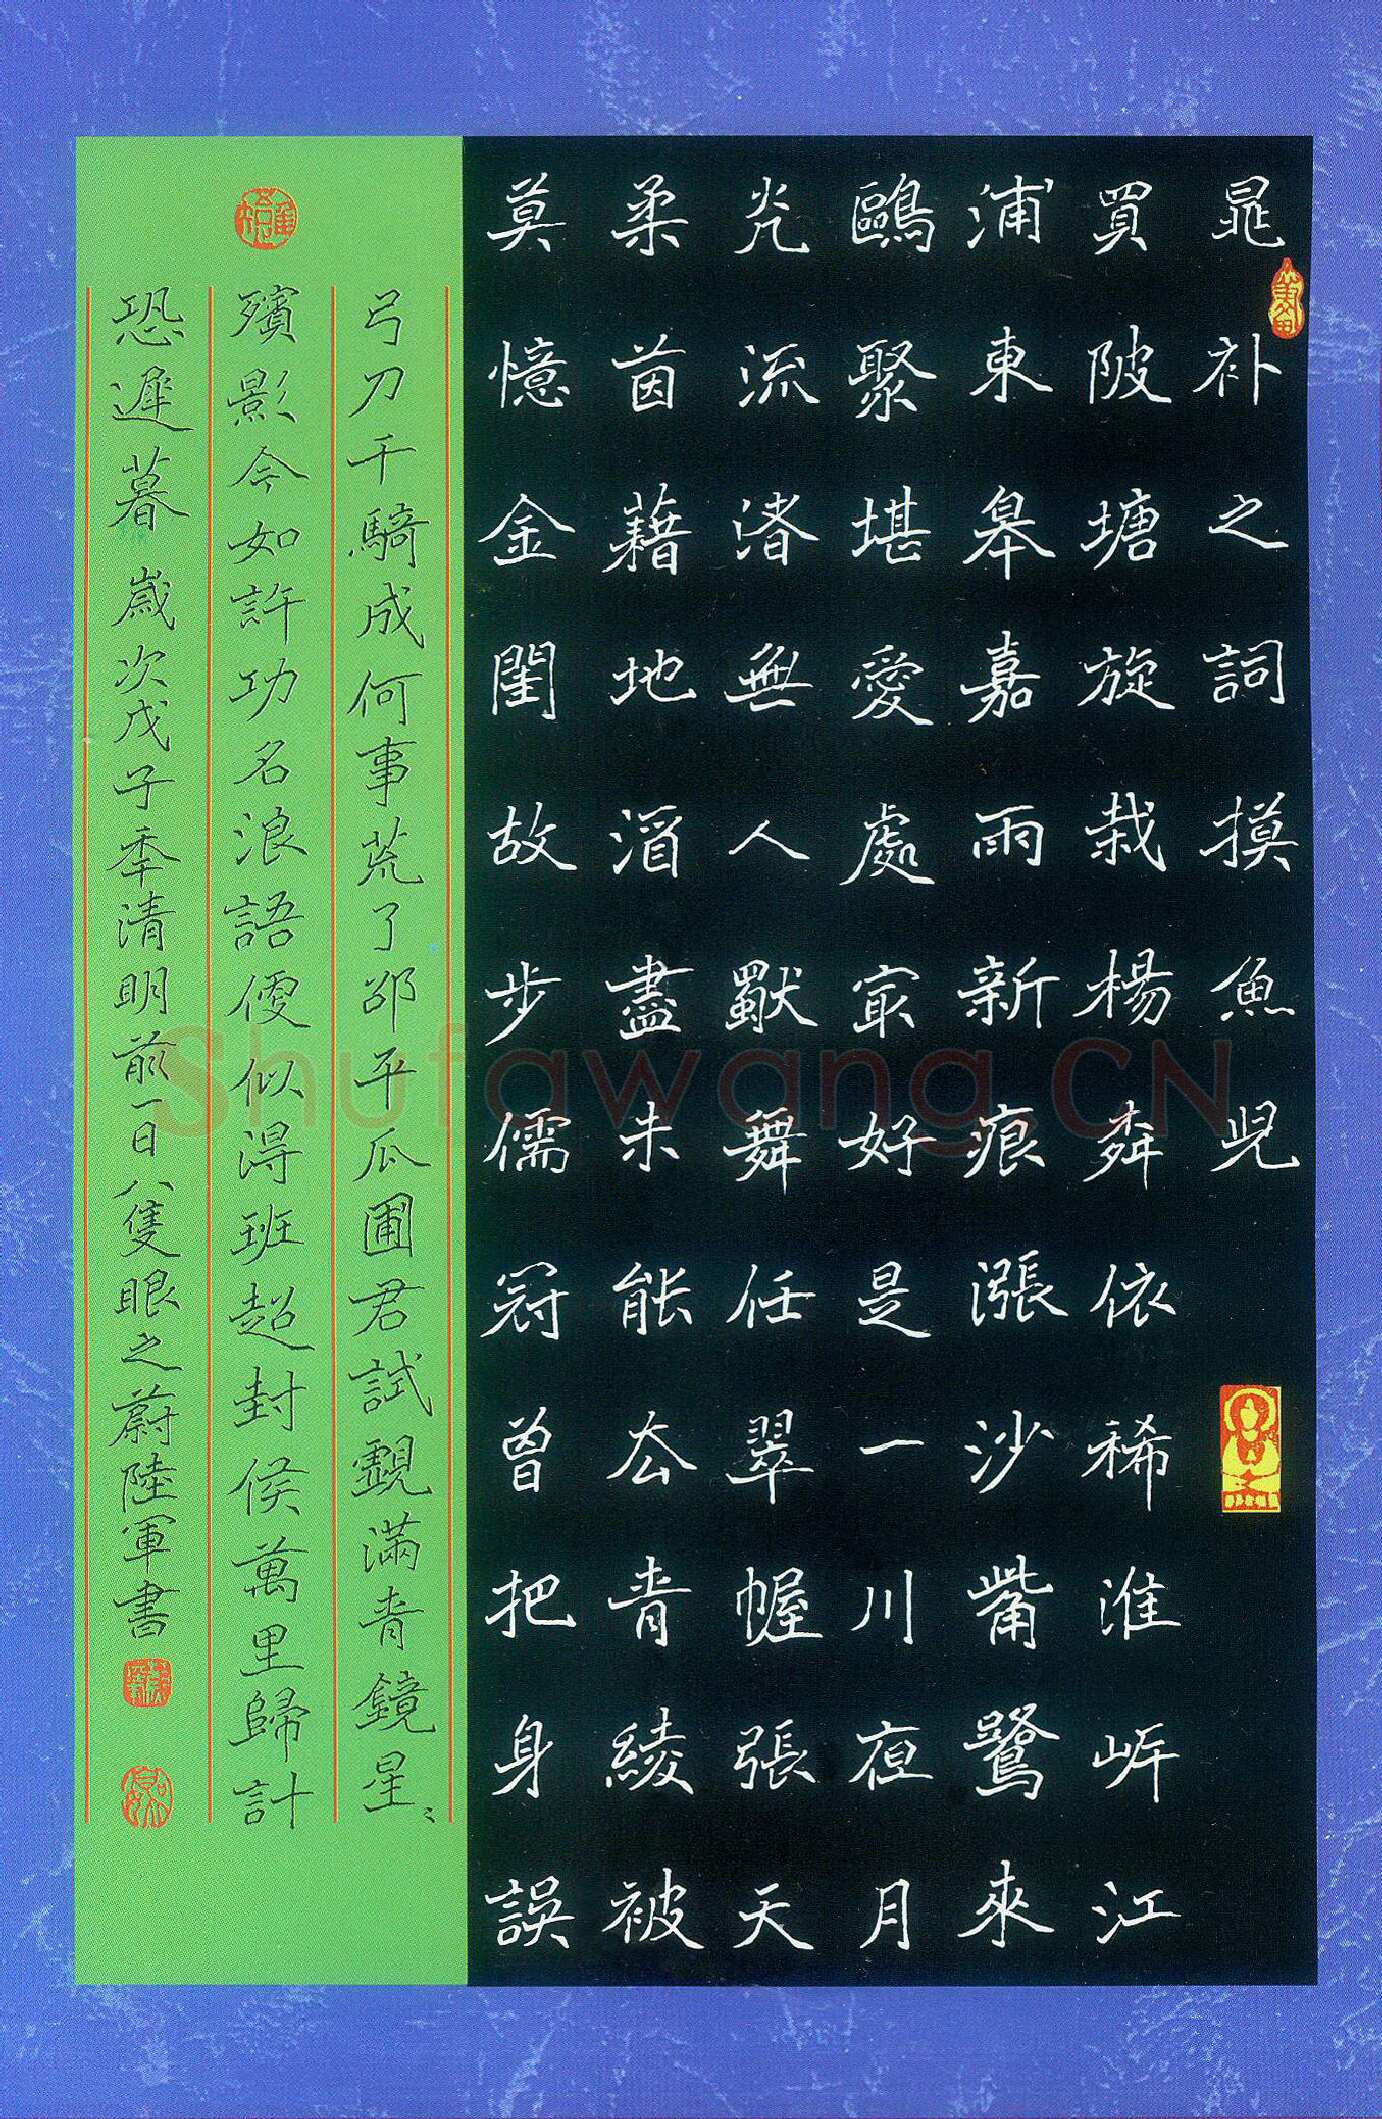 晁补之詞摸魚児
買陂塘旋栽楊柳依稀淮岸江
浦東皋嘉雨新痕漲沙觜鷺來
鷗聚堪愛處最好是一川夜月
光流渚無人獨舞任翠幄張天
柔茵藉地酒盡未能去青綾被
莫憶金閨故步儒冠曾把身誤
弓刀千騎成何事荒了邵平瓜圃君試覷滿青鏡星〻
殯影今如許功名浪語便似得班超封侯萬里歸計
恐遲暮 歲次戊子秊清明前一日八隻眼之蔚陸軍書
Shufawang.CN